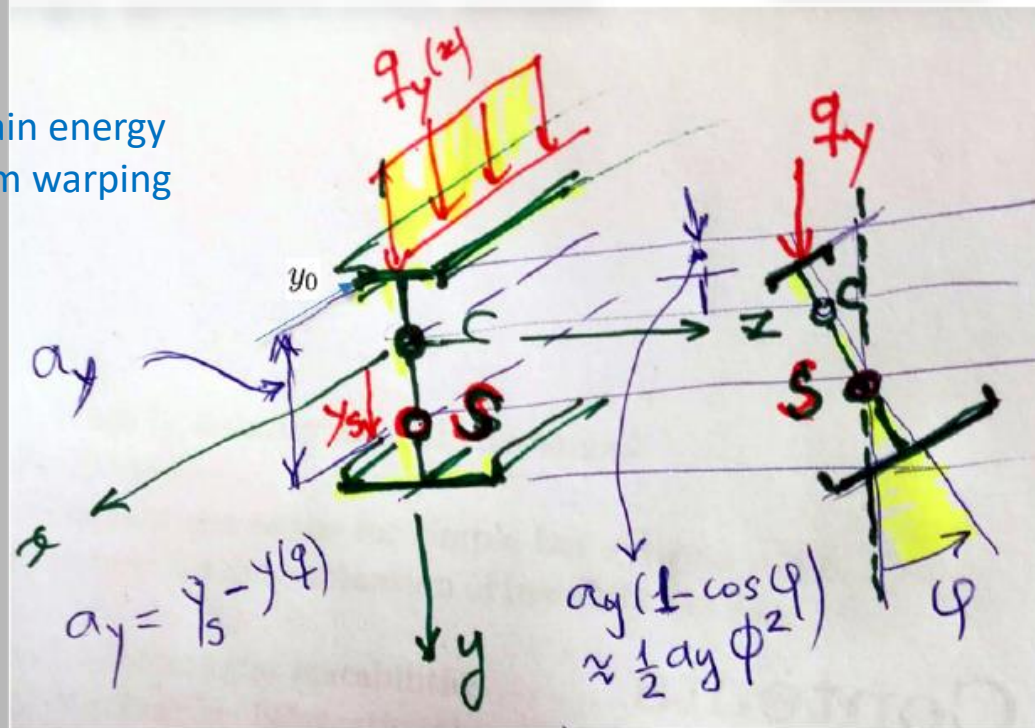 in energy
m warping
q_y(x)
q_y
y_0
C
C
z
a_y
y_s
S
S
x
a_y = y_s - y(q)
y
a_y (1 - cos φ)
≈ 1/2 a_y ϕ^2
φ